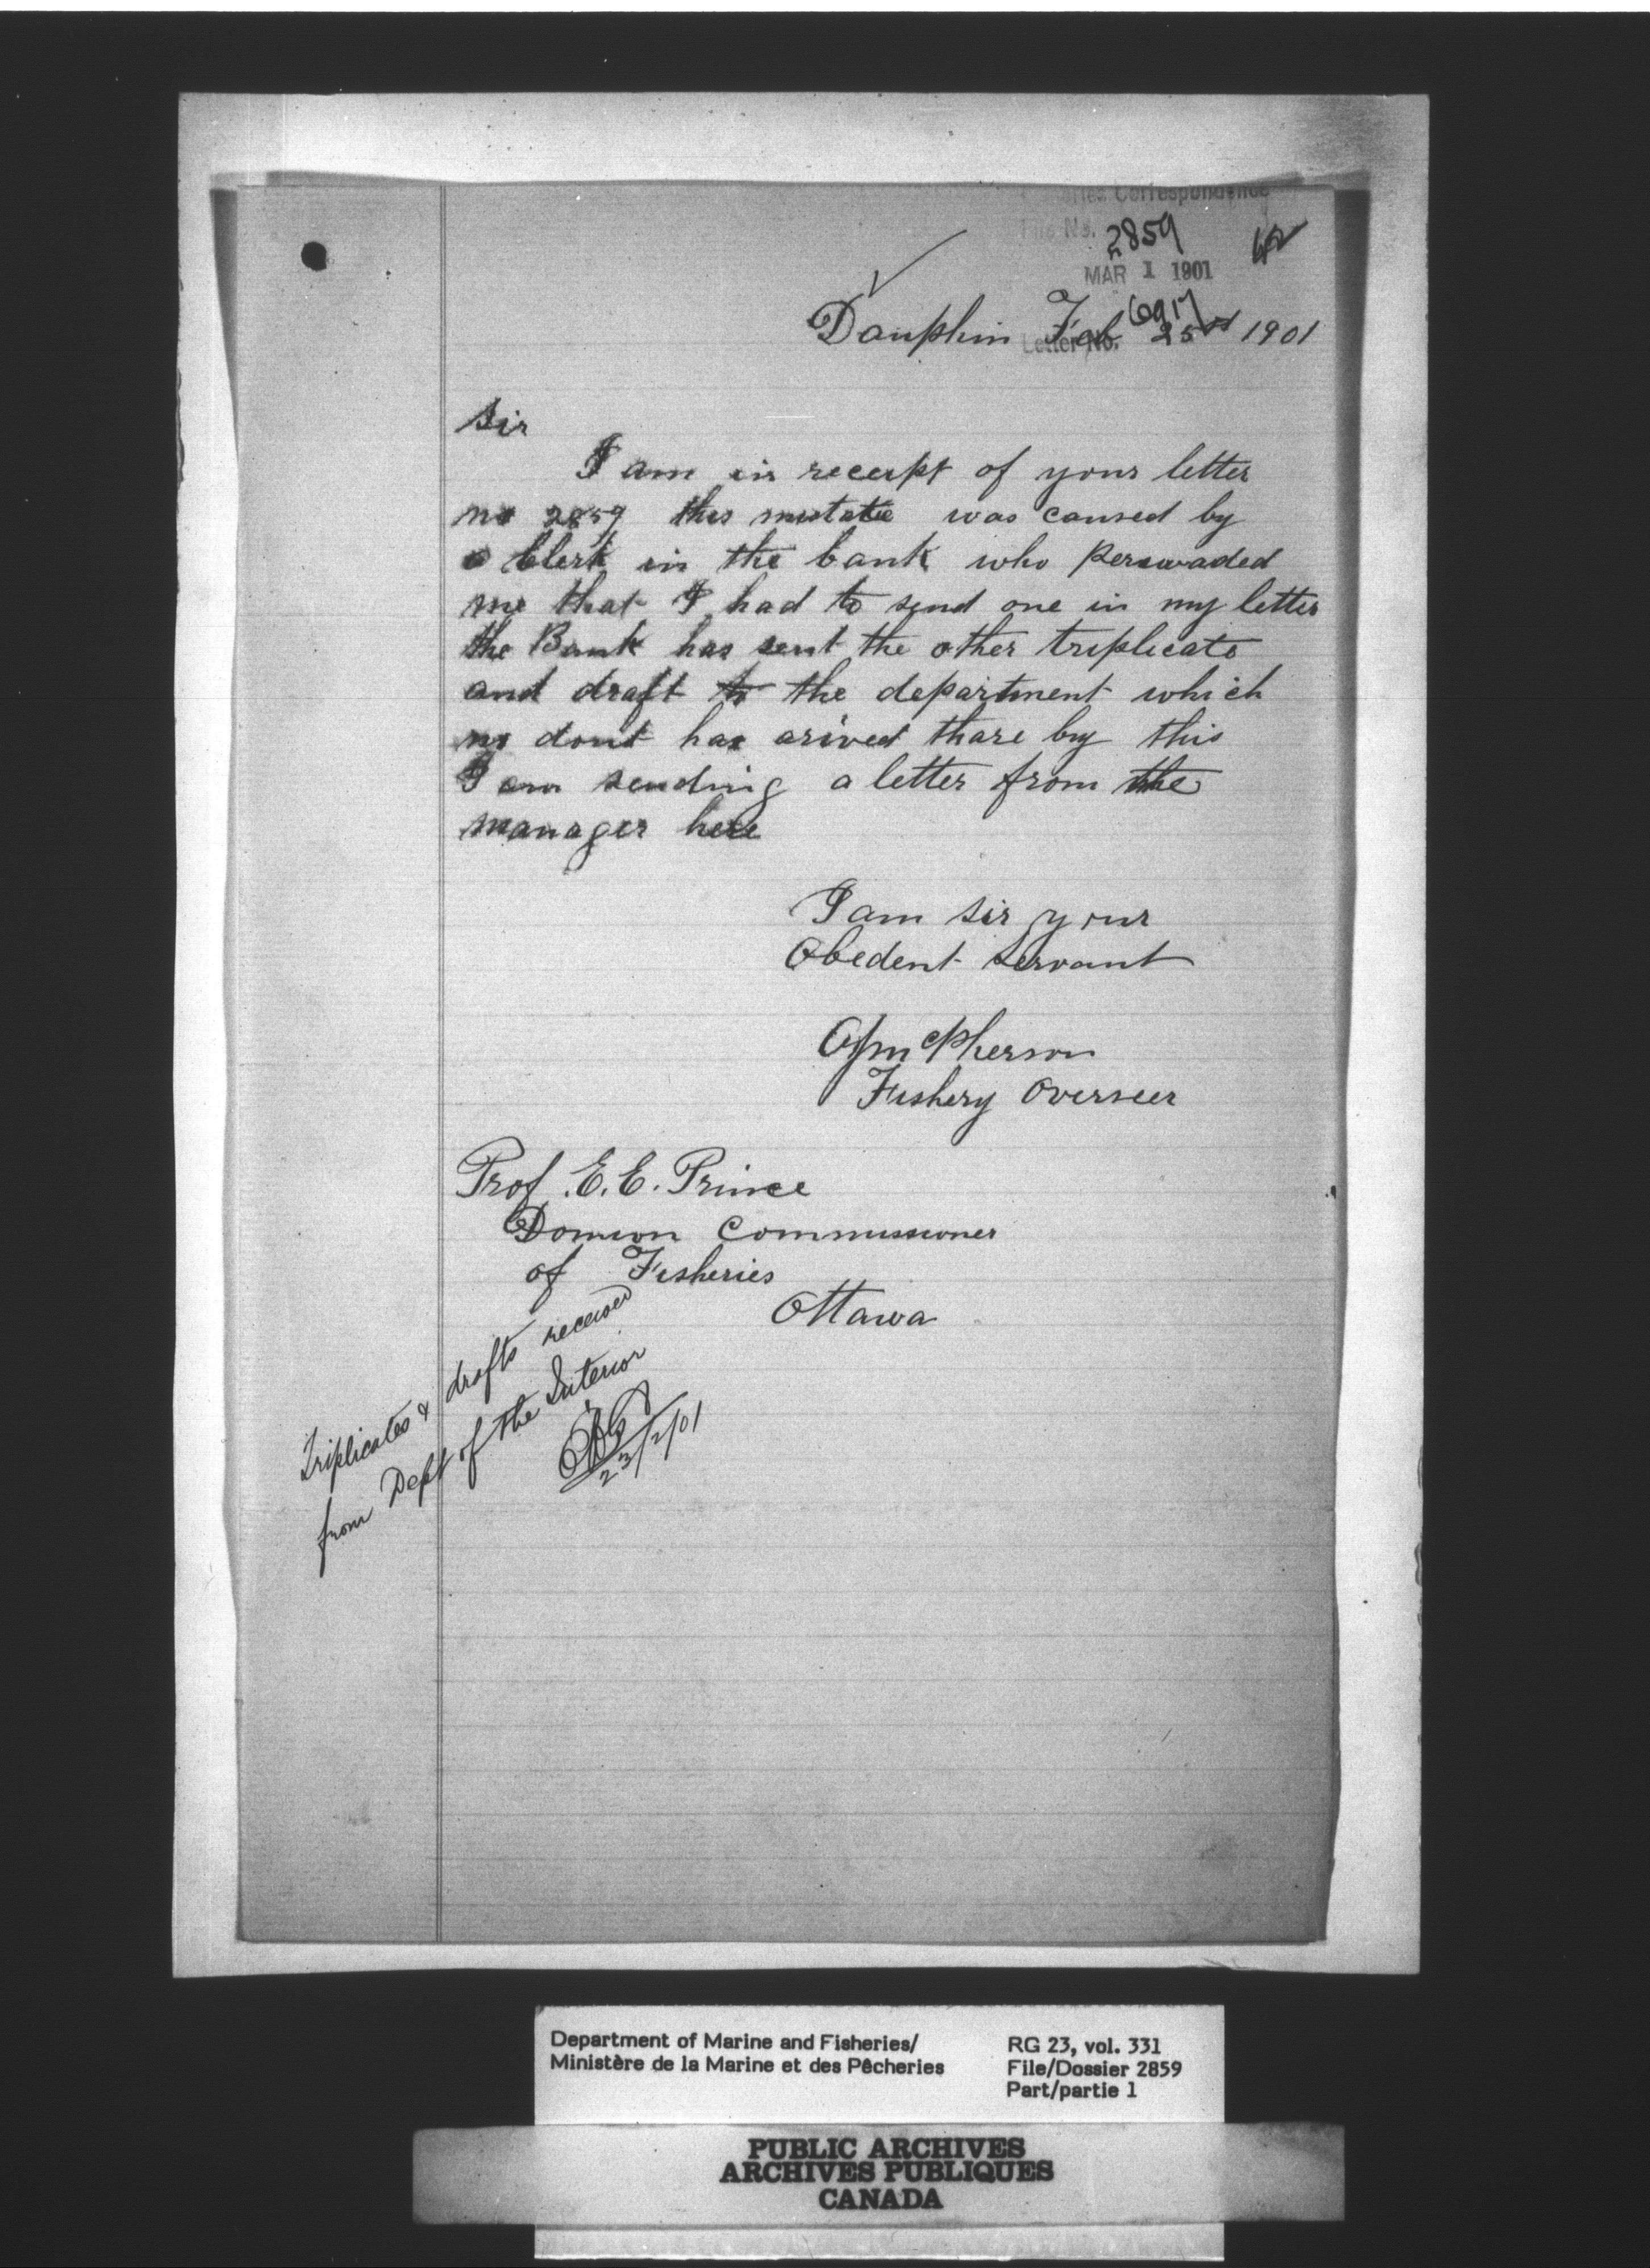 Fisheries Correspondence
File No. 2859
MAR 1 1901
6917
Letter No.
Dauphin Feb 25st 1901
Sir
I am in receipt of your letter
no 2859 this mistake was caused by
a Clerk in the bank who perswaded
me that I had to send one in my letter
the Bank has sent the other triplicate
and draft to the department which
no dout has arived thare by this
I am sending a letter from the
manager here
I am sir your
Obedent servant
McPherson
Fishery Overseer
Prof. E. E. Prince
Domion Commissioner
of Fisheries
Ottawa
Triplicates & drafts received
from Dept of the Interior
23/2/01
Department of Marine and Fisheries/
Ministère de la Marine et des Pêcheries
RG 23, vol. 331
File/Dossier 2859
Part/partie 1
PUBLIC ARCHIVES
ARCHIVES PUBLIQUES
CANADA